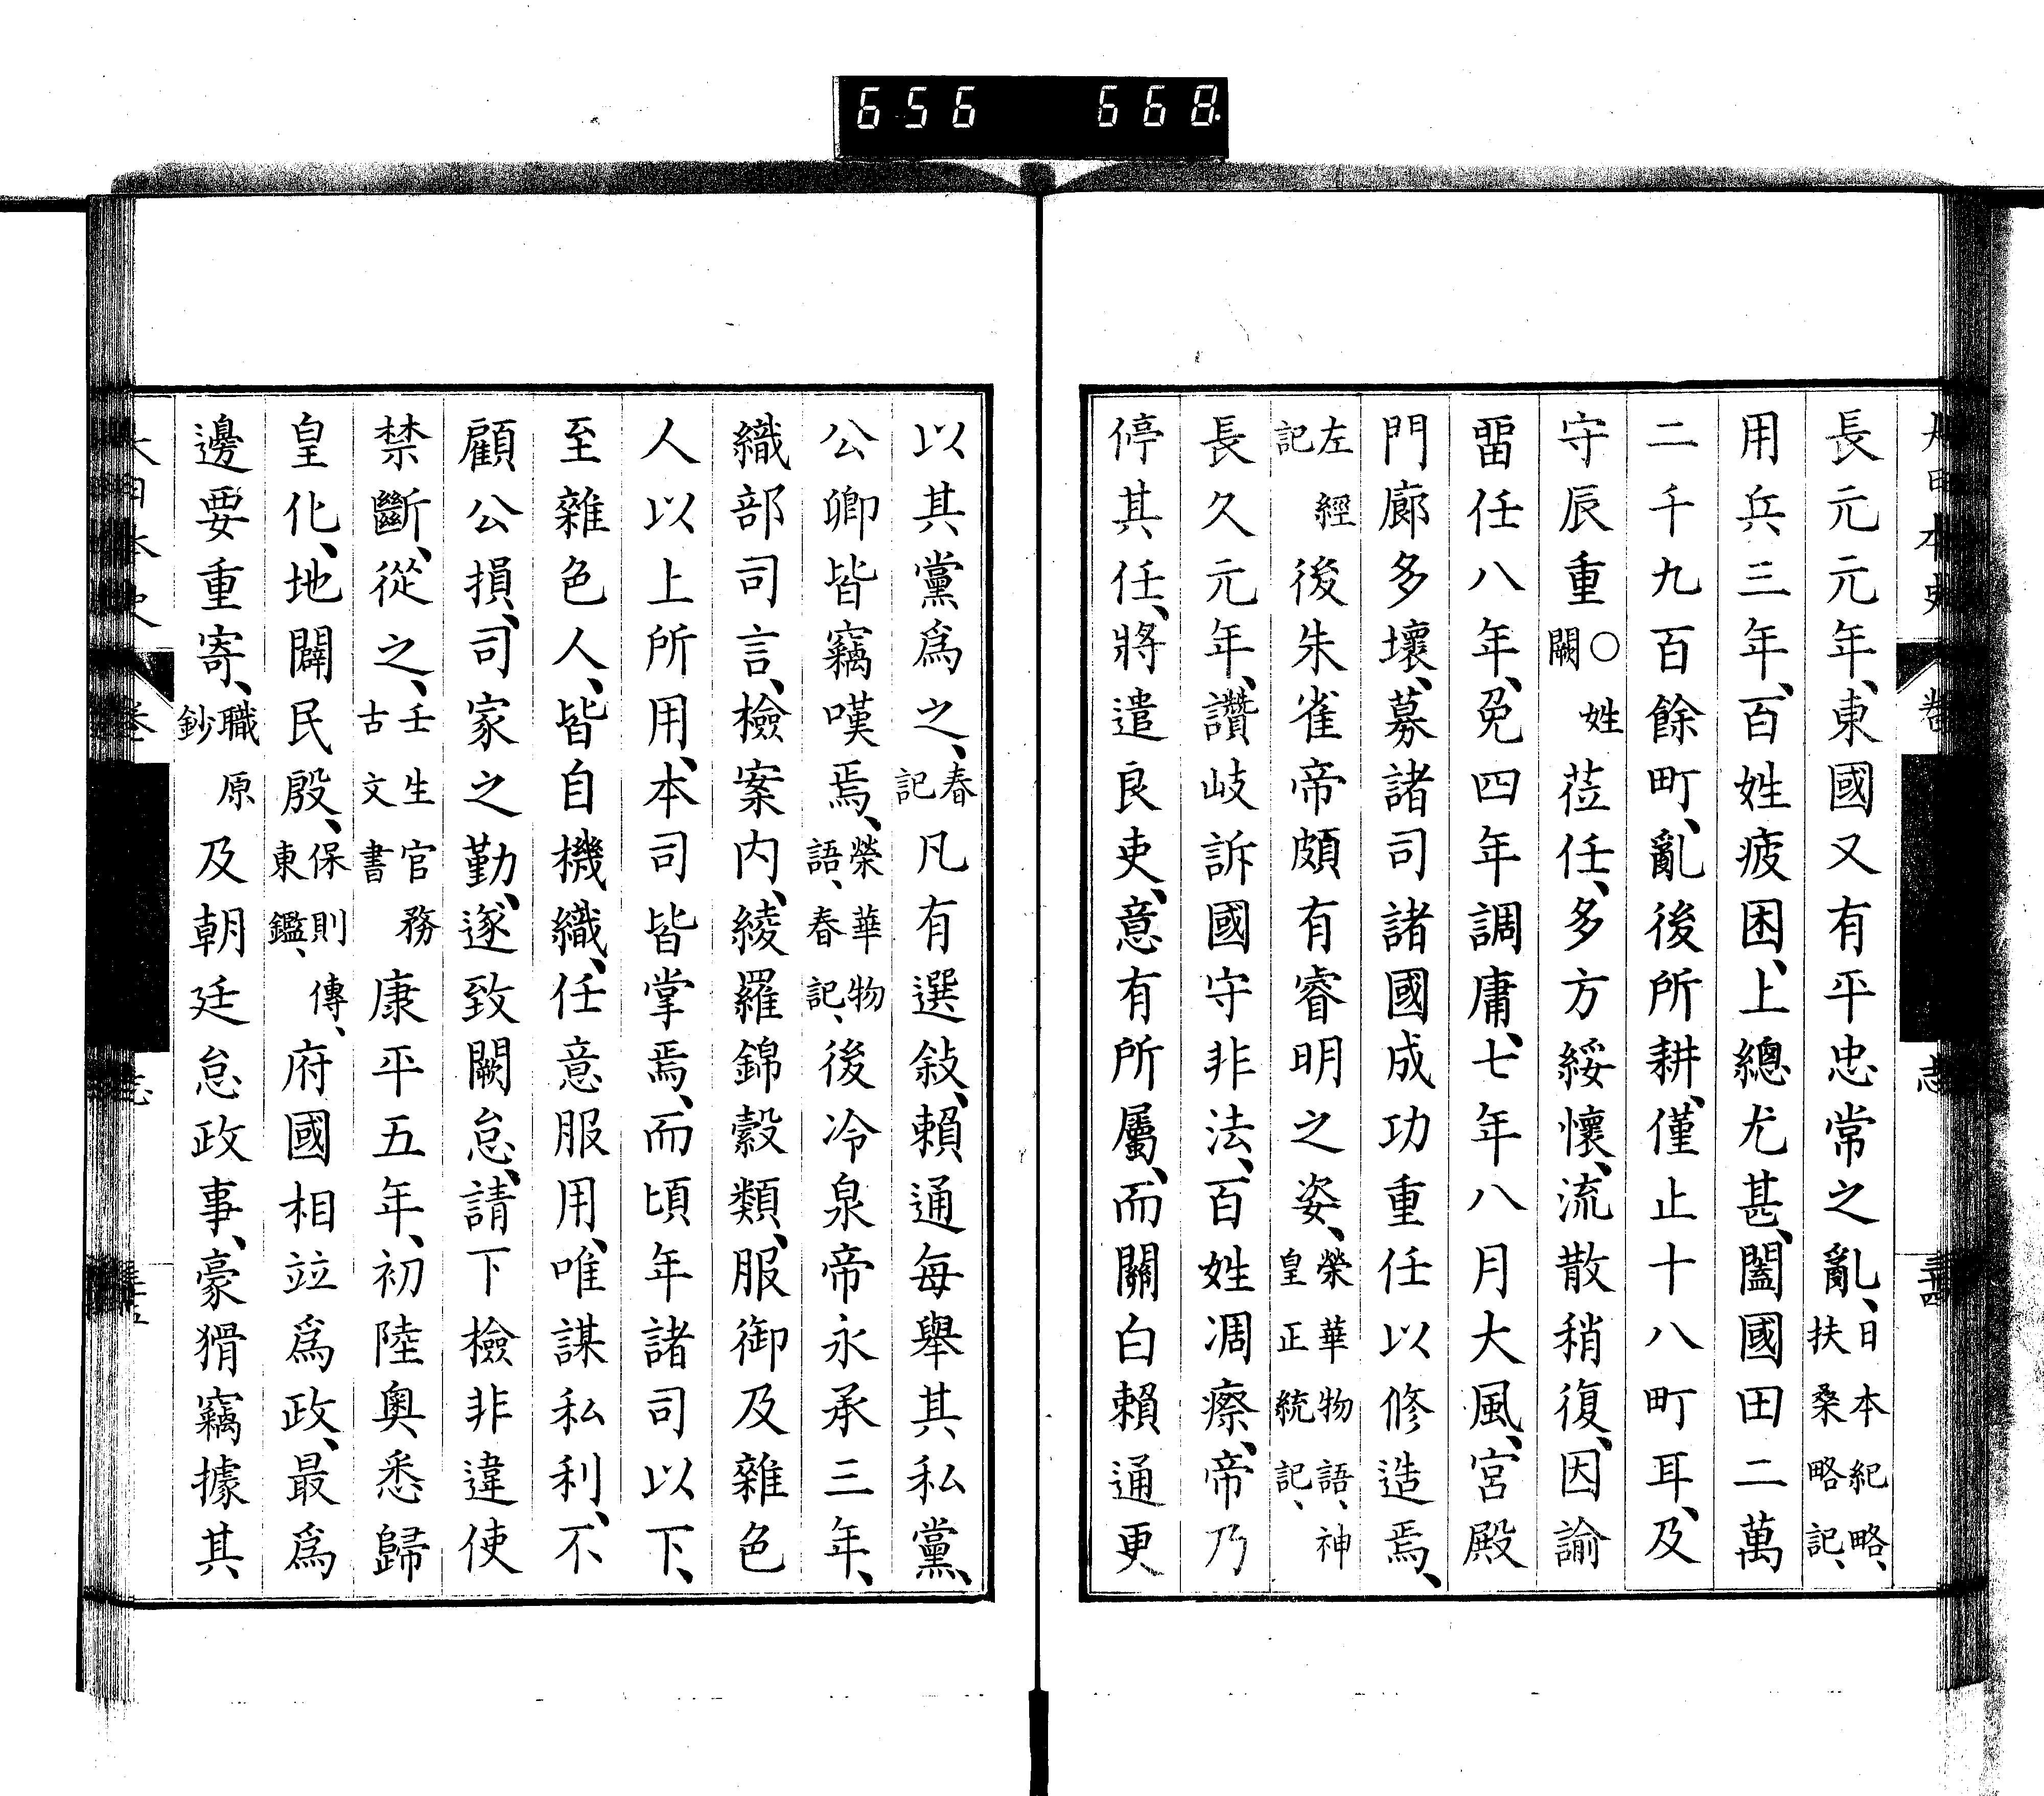 656 668
長元元年、東國又有平忠常之亂、日本紀略、扶桑略記、
用兵三年、百姓疲困、上總尤甚、闔國田二萬
二千九百餘町、亂後所耕、僅止十八町耳、及
守辰重〇姓闕莅任、多方綏懷、流散稍復、因諭
畱任八年、免四年調庸、七年八月大風、宮殿
門廊多壞、募諸司諸國成功重任以修造焉、
左經記後朱雀帝頗有睿明之姿、榮華物語、神皇正統記、
長久元年、讚岐訴國守非法、百姓凋瘵、帝乃
停其任、將遣良吏、意有所屬、而關白賴通更
以其黨爲之、春記凡有選敍、賴通每舉其私黨、
公卿皆竊嘆焉、榮華物語、春記、後冷泉帝永承三年、
織部司言、檢案内、綾羅錦縠類、服御及雜色
人以上所用、本司皆掌焉、而頃年諸司以下、
至雜色人、皆自機織、任意服用、唯謀私利、不
顧公損、司家之勤、遂致闕怠、請下檢非違使
禁斷、從之、壬生官務古文書康平五年、初陸奧悉歸
皇化、地闢民殷、保則傳、東鑑、府國相竝爲政、最爲
邊要重寄、職原鈔及朝廷怠政事、豪猾竊據其